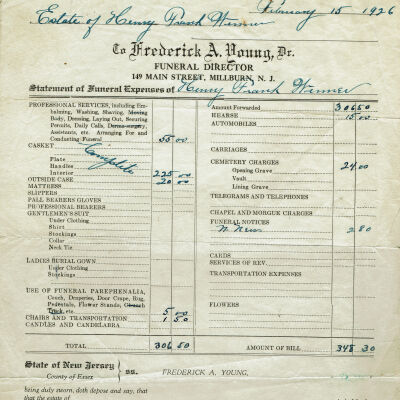 February 15 1926
Estate of Henry Frank Wenner
To Frederick A. Young, Dr.
FUNERAL DIRECTOR
149 MAIN STREET, MILLBURN, N. J.
Statement of Funeral Expenses of Henry Frank Wenner
PROFESSIONAL SERVICES, including Em-
balming, Washing, Shaving, Moving
Body, Dressing, Laying Out, Securing
Permits, Daily Calls, Dermo-surgery,
Assistants, etc. Arranging For and
Conducting Funeral 55 00
CASKET Complete
Plate
Handles
Interior 225 00
OUTSIDE CASE 20 00
MATTRESS
SLIPPERS
PALL BEARERS GLOVES
PROFESSIONAL BEARERS
GENTLEMEN'S SUIT
Under Clothing
Shirt
Stockings
Collar
Neck Tie
LADIES BURIAL GOWN
Under Clothing
Stockings
USE OF FUNERAL PAREPHENALIA,
Couch, Draperies, Door Crape, Rug,
Pedestals, Flower Stands, Church
Truck, etc. 5 00
CHAIRS AND TRANSPORTATION 1 50
CANDLES AND CANDELABRA
TOTAL 306 50
Amount Forwarded 306 50
HEARSE 15 00
AUTOMOBILES
CARRIAGES
CEMETERY CHARGES 24 00
Opening Grave
Vault
Lining Grave
TELEGRAMS AND TELEPHONES
CHAPEL AND MORGUE CHARGES
FUNERAL NOTICES
N. News 2 80
CARDS
SERVICES OF REV.
TRANSPORTATION EXPENSES
FLOWERS
AMOUNT OF BILL 348 30
State of New Jersey
County of Essex } ss. FREDERICK A. YOUNG,
being duly sworn, doth depose and say, that
that the estate of